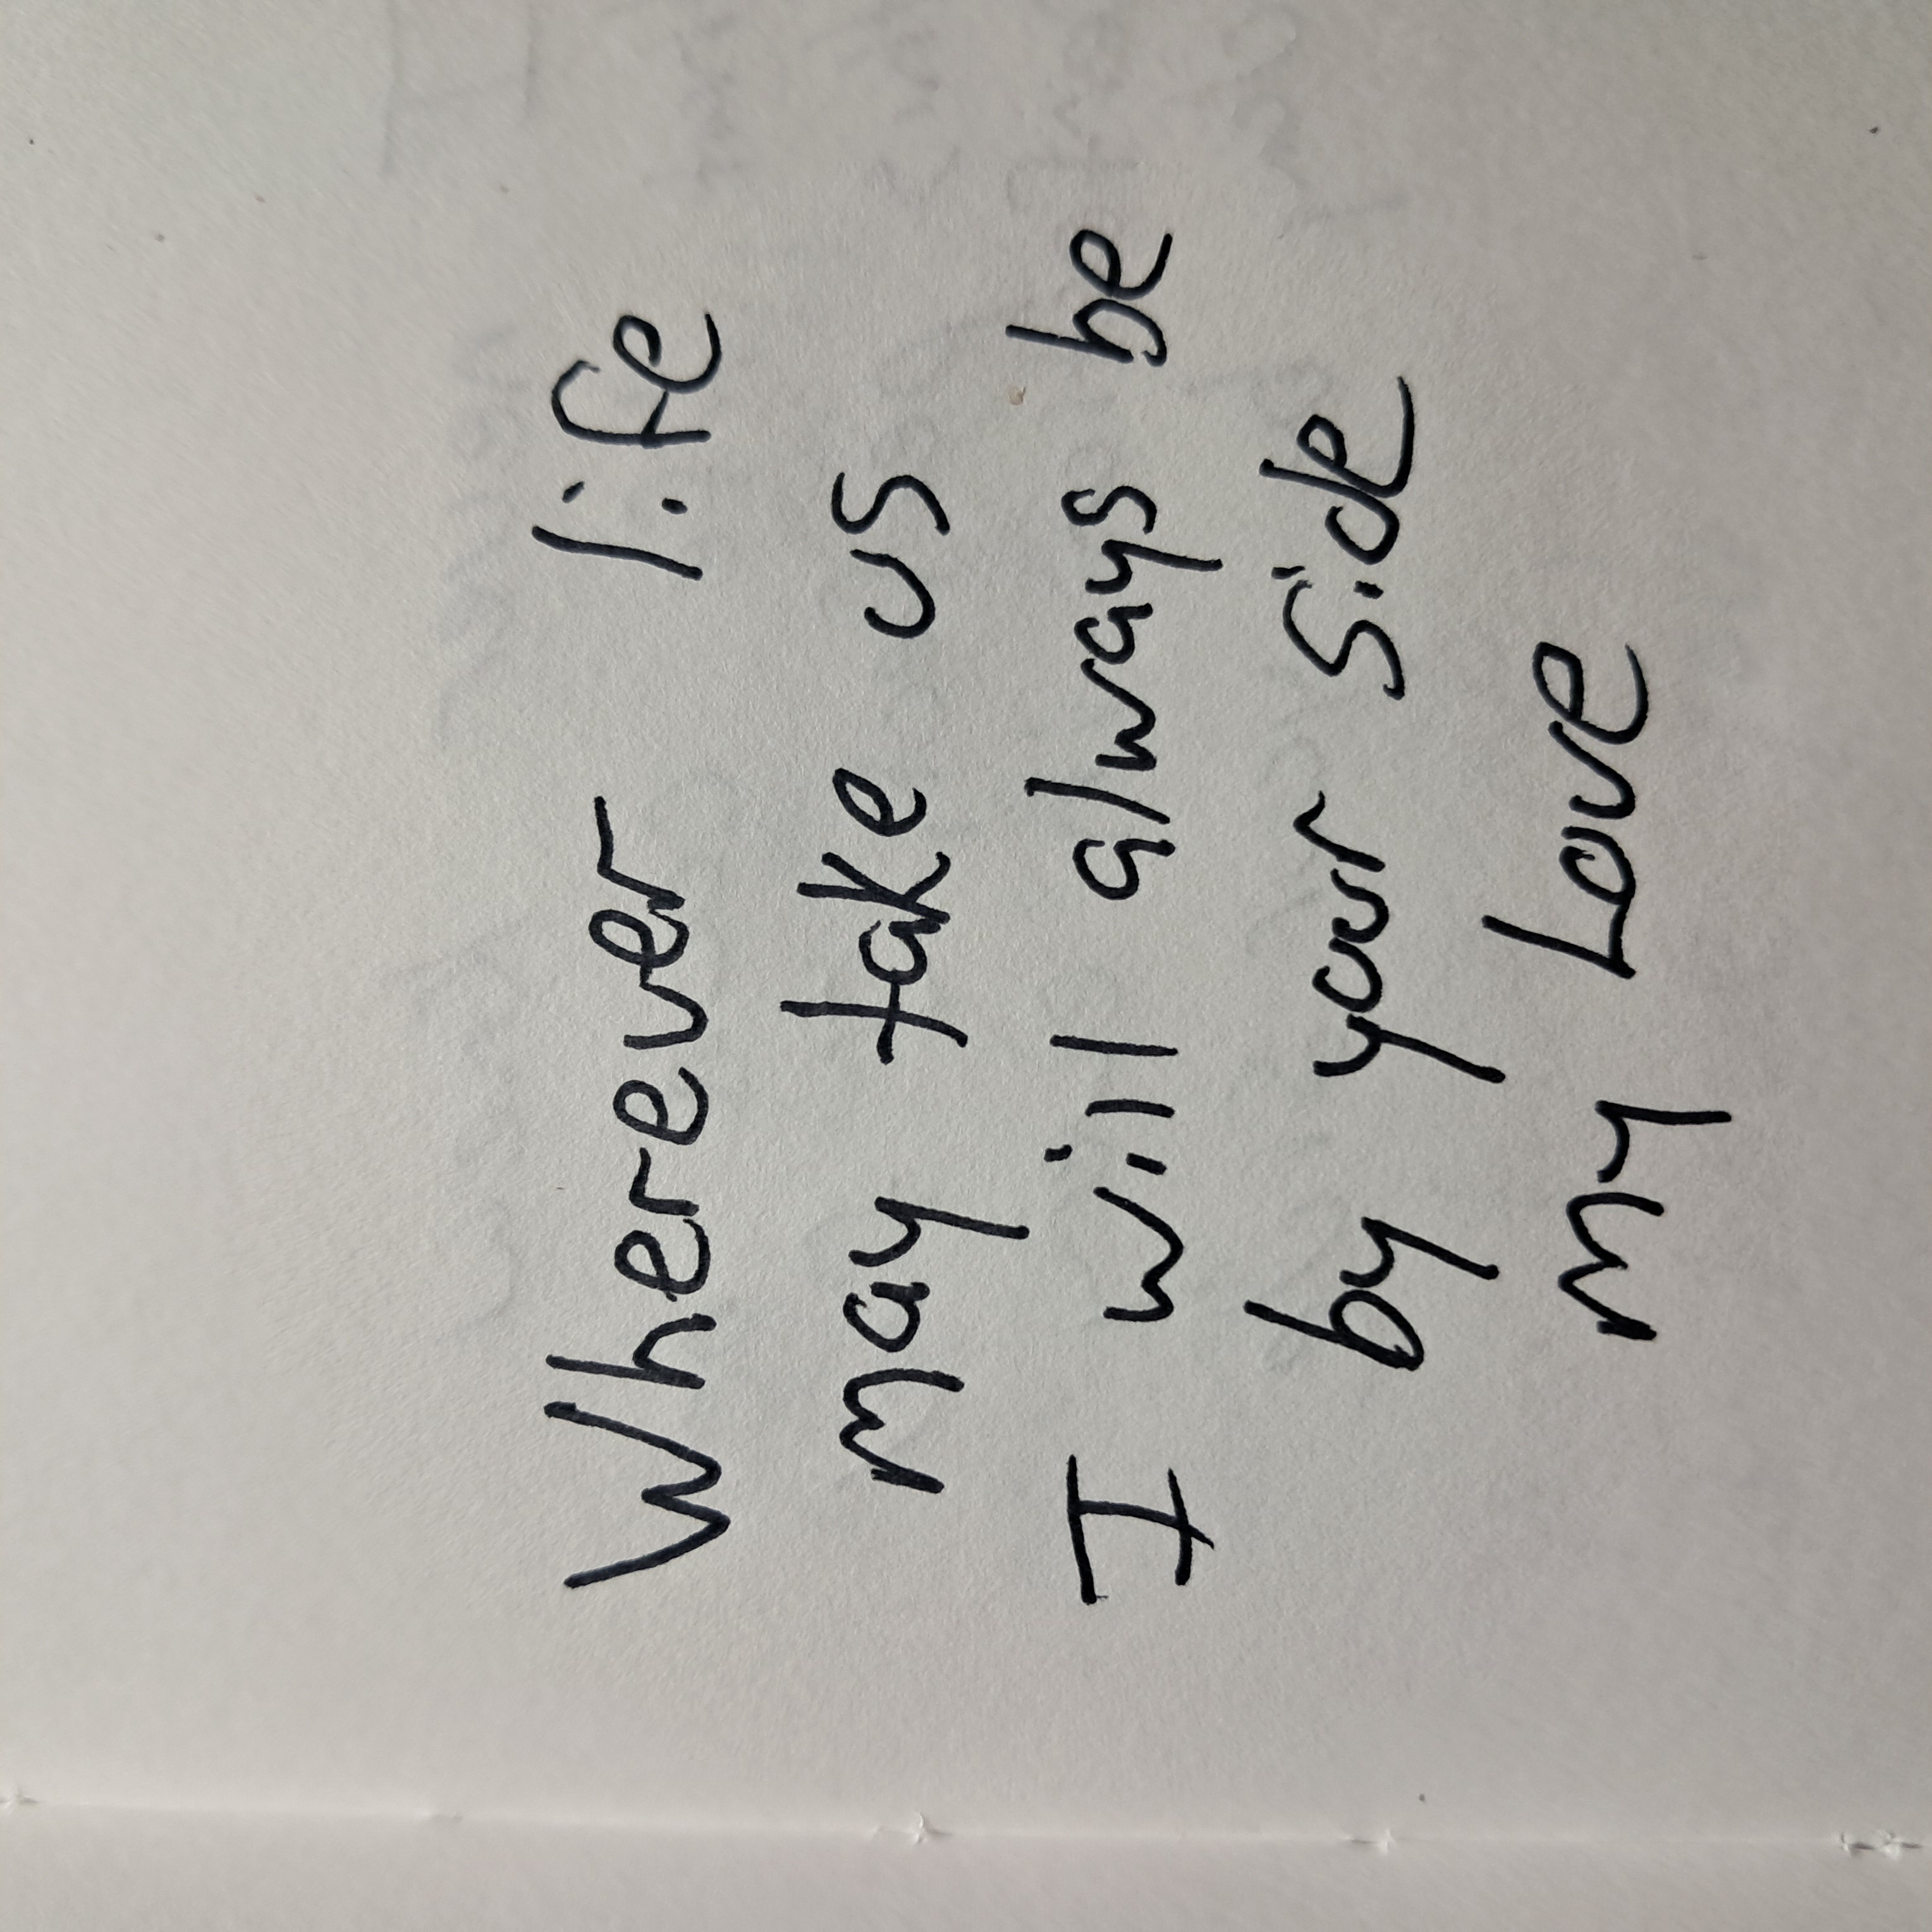 Wherever life
may take us
I will always be
by your side
my Love